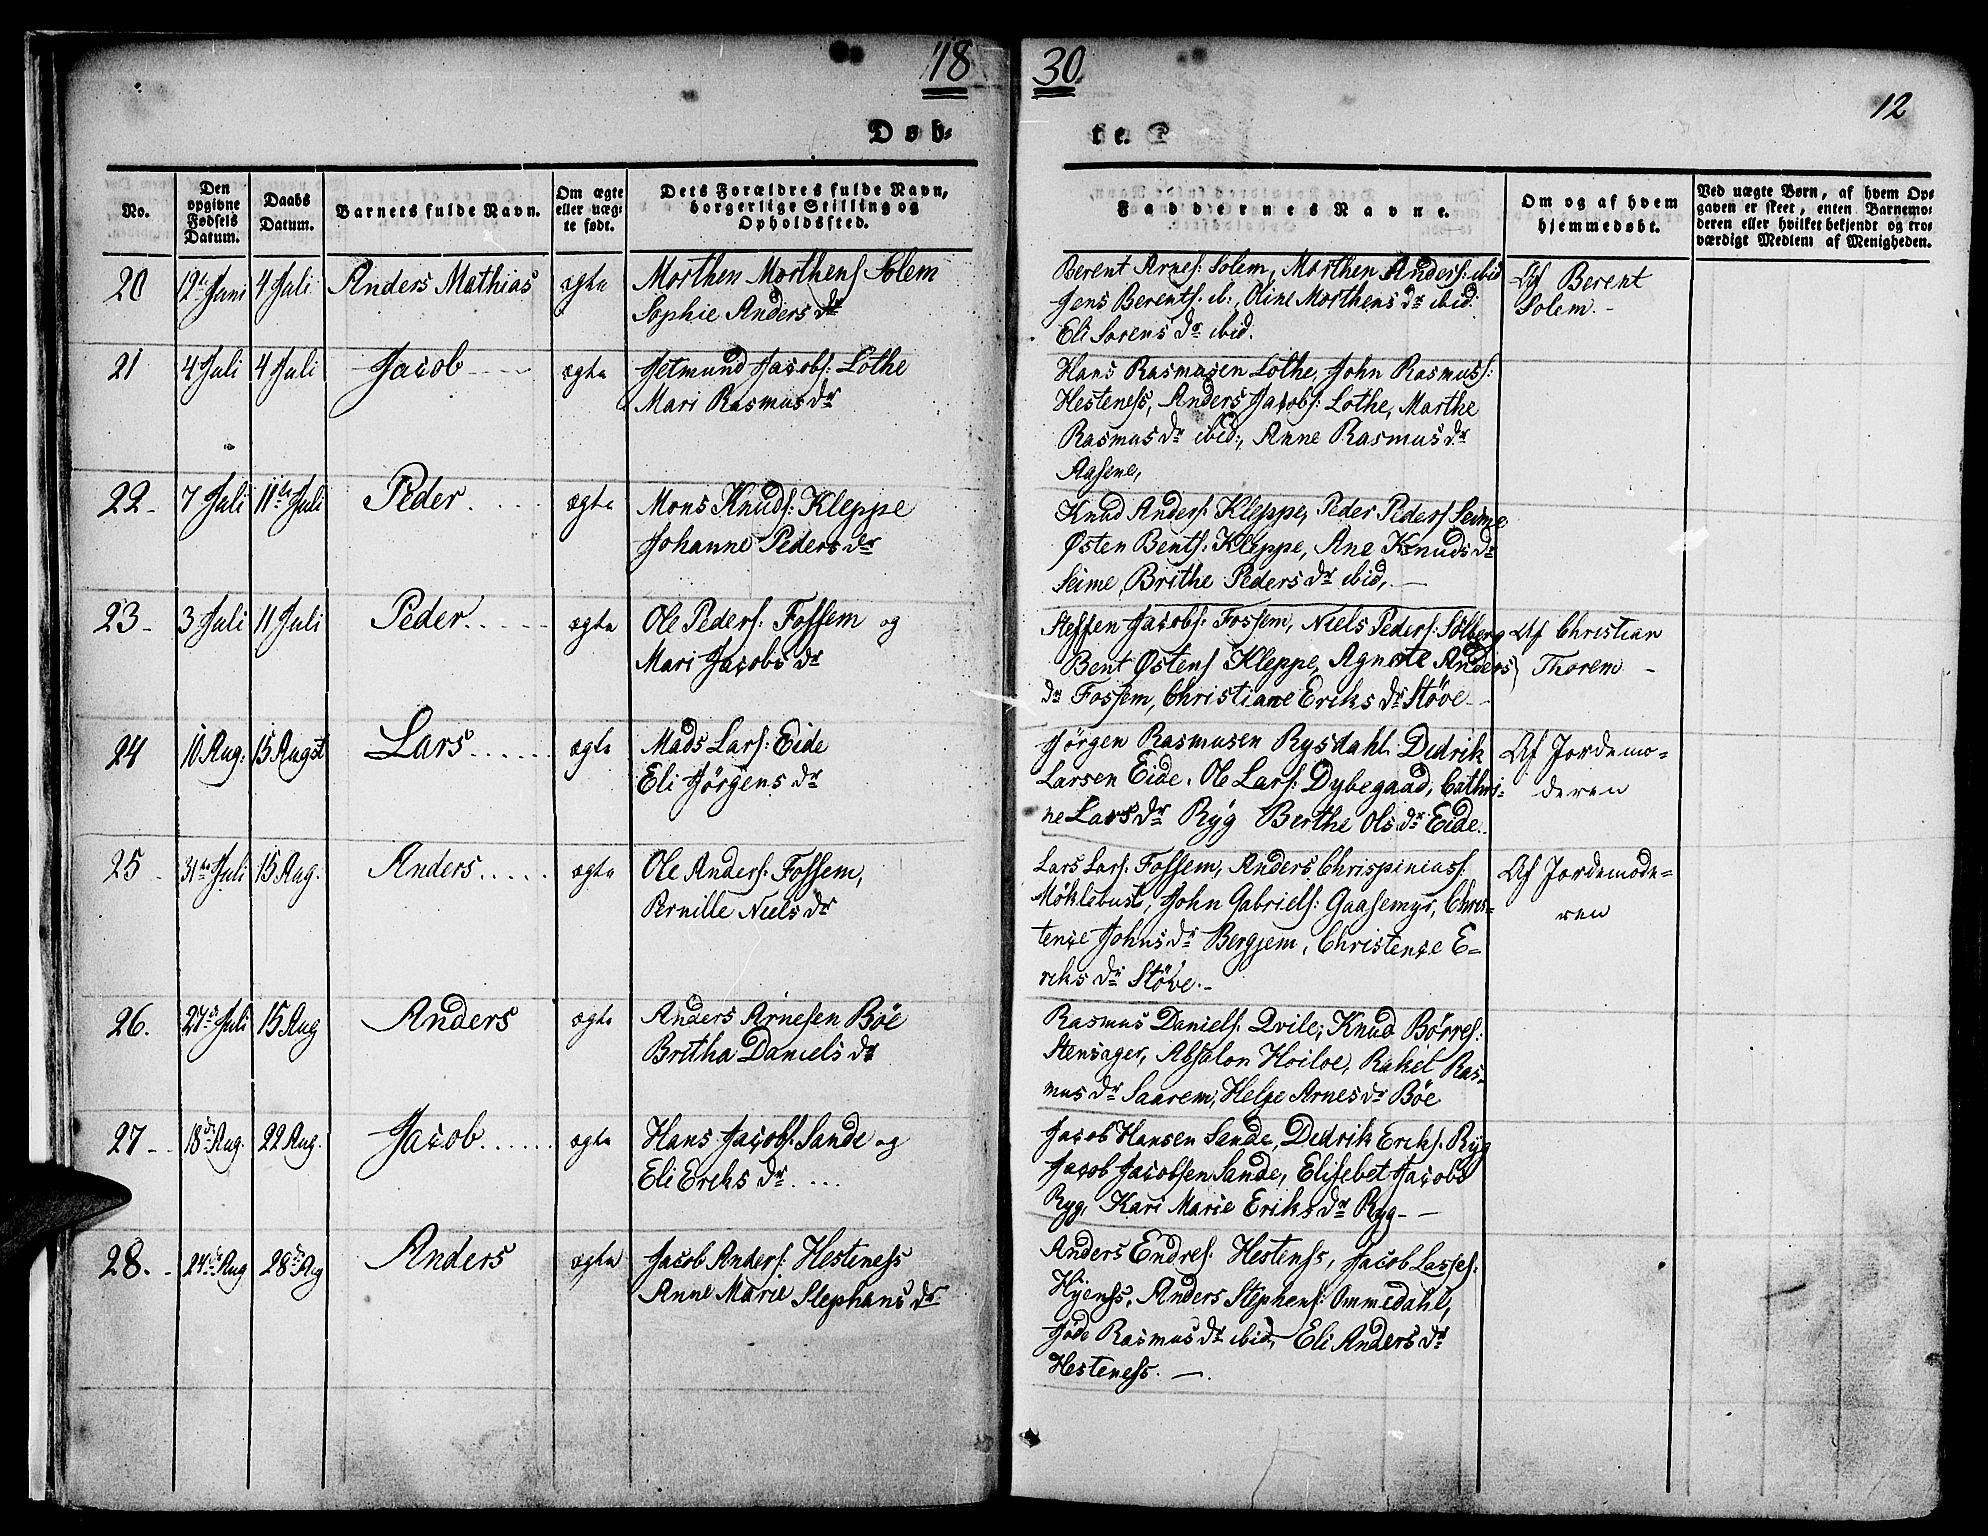 18 30
12
Døb- te. 
No.
Den opgivne Fødsels Datum.
Daabs Datum.
Barnets fulde Navn.
Om ægte eller uæg- te født.
Dets Forældres fulde Navn, borgerlige Stilling og Opholdssted.
Faddernes Navne.
Om og af hvem hjemmedøbt.
Ved uægte Børn, af hvem Op- gaven er skeet, enten Barnemo- deren eller hvilket bekjendt og tro- værdigt Medlem af Menigheden.
20 12te Juni 4 Juli Anders Mathias ægte Morthen Morthens Solem
Sophie Anders dr
Berent Arnes: Solem, Morthen Anders: ibid
Jens Berents: ib:, Oline Morthens dr ibid:
Eli Sørens dr ibid.
Af Berent
Solem. -
21 4 Juli 4 Juli Jacob ægte Jetmund Jacobs: Lothe
Mari Rasmus dr
Hans Rasmusen Lothe, John Rasmuss:
Hesteness, Anders Jacobs: Lothe, Marthe
Rasmus dr ibid:, Anne Rasmus dr
Aasene,
22 - 7 Juli 11te Juli Peder ægte Mons Knuds: Kleppe
Johanne Peders dr
Knud Anders: Kleppe, Peder Peders Seime
Østen Bents: Kleppe, Ane Knuds dr
Seime, Brithe Peders dr ibid,
23 - 3 Juli 11 Juli Peder ægte Ole Peders: Fossem og
Mari Jacobs dr
Steffen Jacobs: Fossem, Niels Peders: Solberg
Bent Østens Kleppe, Agnete Anders
dr Fossem, Christiane Eriks dr Støve -
Af Christian
Thorem -
24 10 Aug: 15 Augst Lars ægte Mads Lars: Eide
Eli Jørgens dr
Jørgen Rasmusen Rysdahl. Dedrik
Larsen Eide, Ole Lars: Dybegaad, Cathri-
ne Lars dr Ryg Berthe Ols dr Eide.
Af Jordemo-
deren
25 31te Juli 15 Aug. Anders ægte Ole Anders: Fossem,
Pernille Niels dr
Lars Lars: Fossem, Anders Chrispinuss:
Møklebust, John Gabriels: Gaasemyr, Chris-
tense Johns dr Bergjem, Christense E-
riks dr Støve. -
Af Jordemode-
ren
26. 27de Juli 15 Aug Anders ægte Anders Arnesen Böe
Britha Daniels dr
Rasmus Daniels: Qvile, Knud Børres:
Stensager, Absalon Hoiloe, Rakel Ras-
mus dr Saarem, Helge Arnes dr Böe
27 - 18de Aug 22 Aug. Jacob ægte Hans Jacobs: Sande og
Eli Ereks dr
Jacob Hansen Sande, Dedrik Ereks: Ryg
Jacob Jacobsen Sande, Elisebet Jacobs
Ryg, Kari Marie Eriks dr Ryg -
28. 24de Aug 28de Aug Anders ægte Jacob Anders: Hesteness
Anne Marie Stephans dr
Anders Endres: Hestenss, Jacob Lasses:
Hyenss, Anders Stephens: Ommedahl,
Jøde Rasmus dr ibid, Eli Anders dr
Hesteness. -